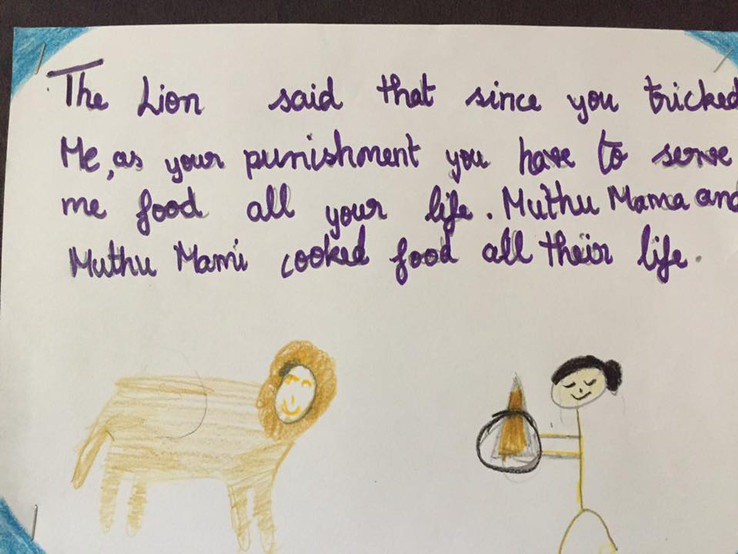 The Lion said that since you tricked
Me, as your punishment you have to serve
me food all your life. Muthu Mama and
Muthu Mami cooked food all their life.